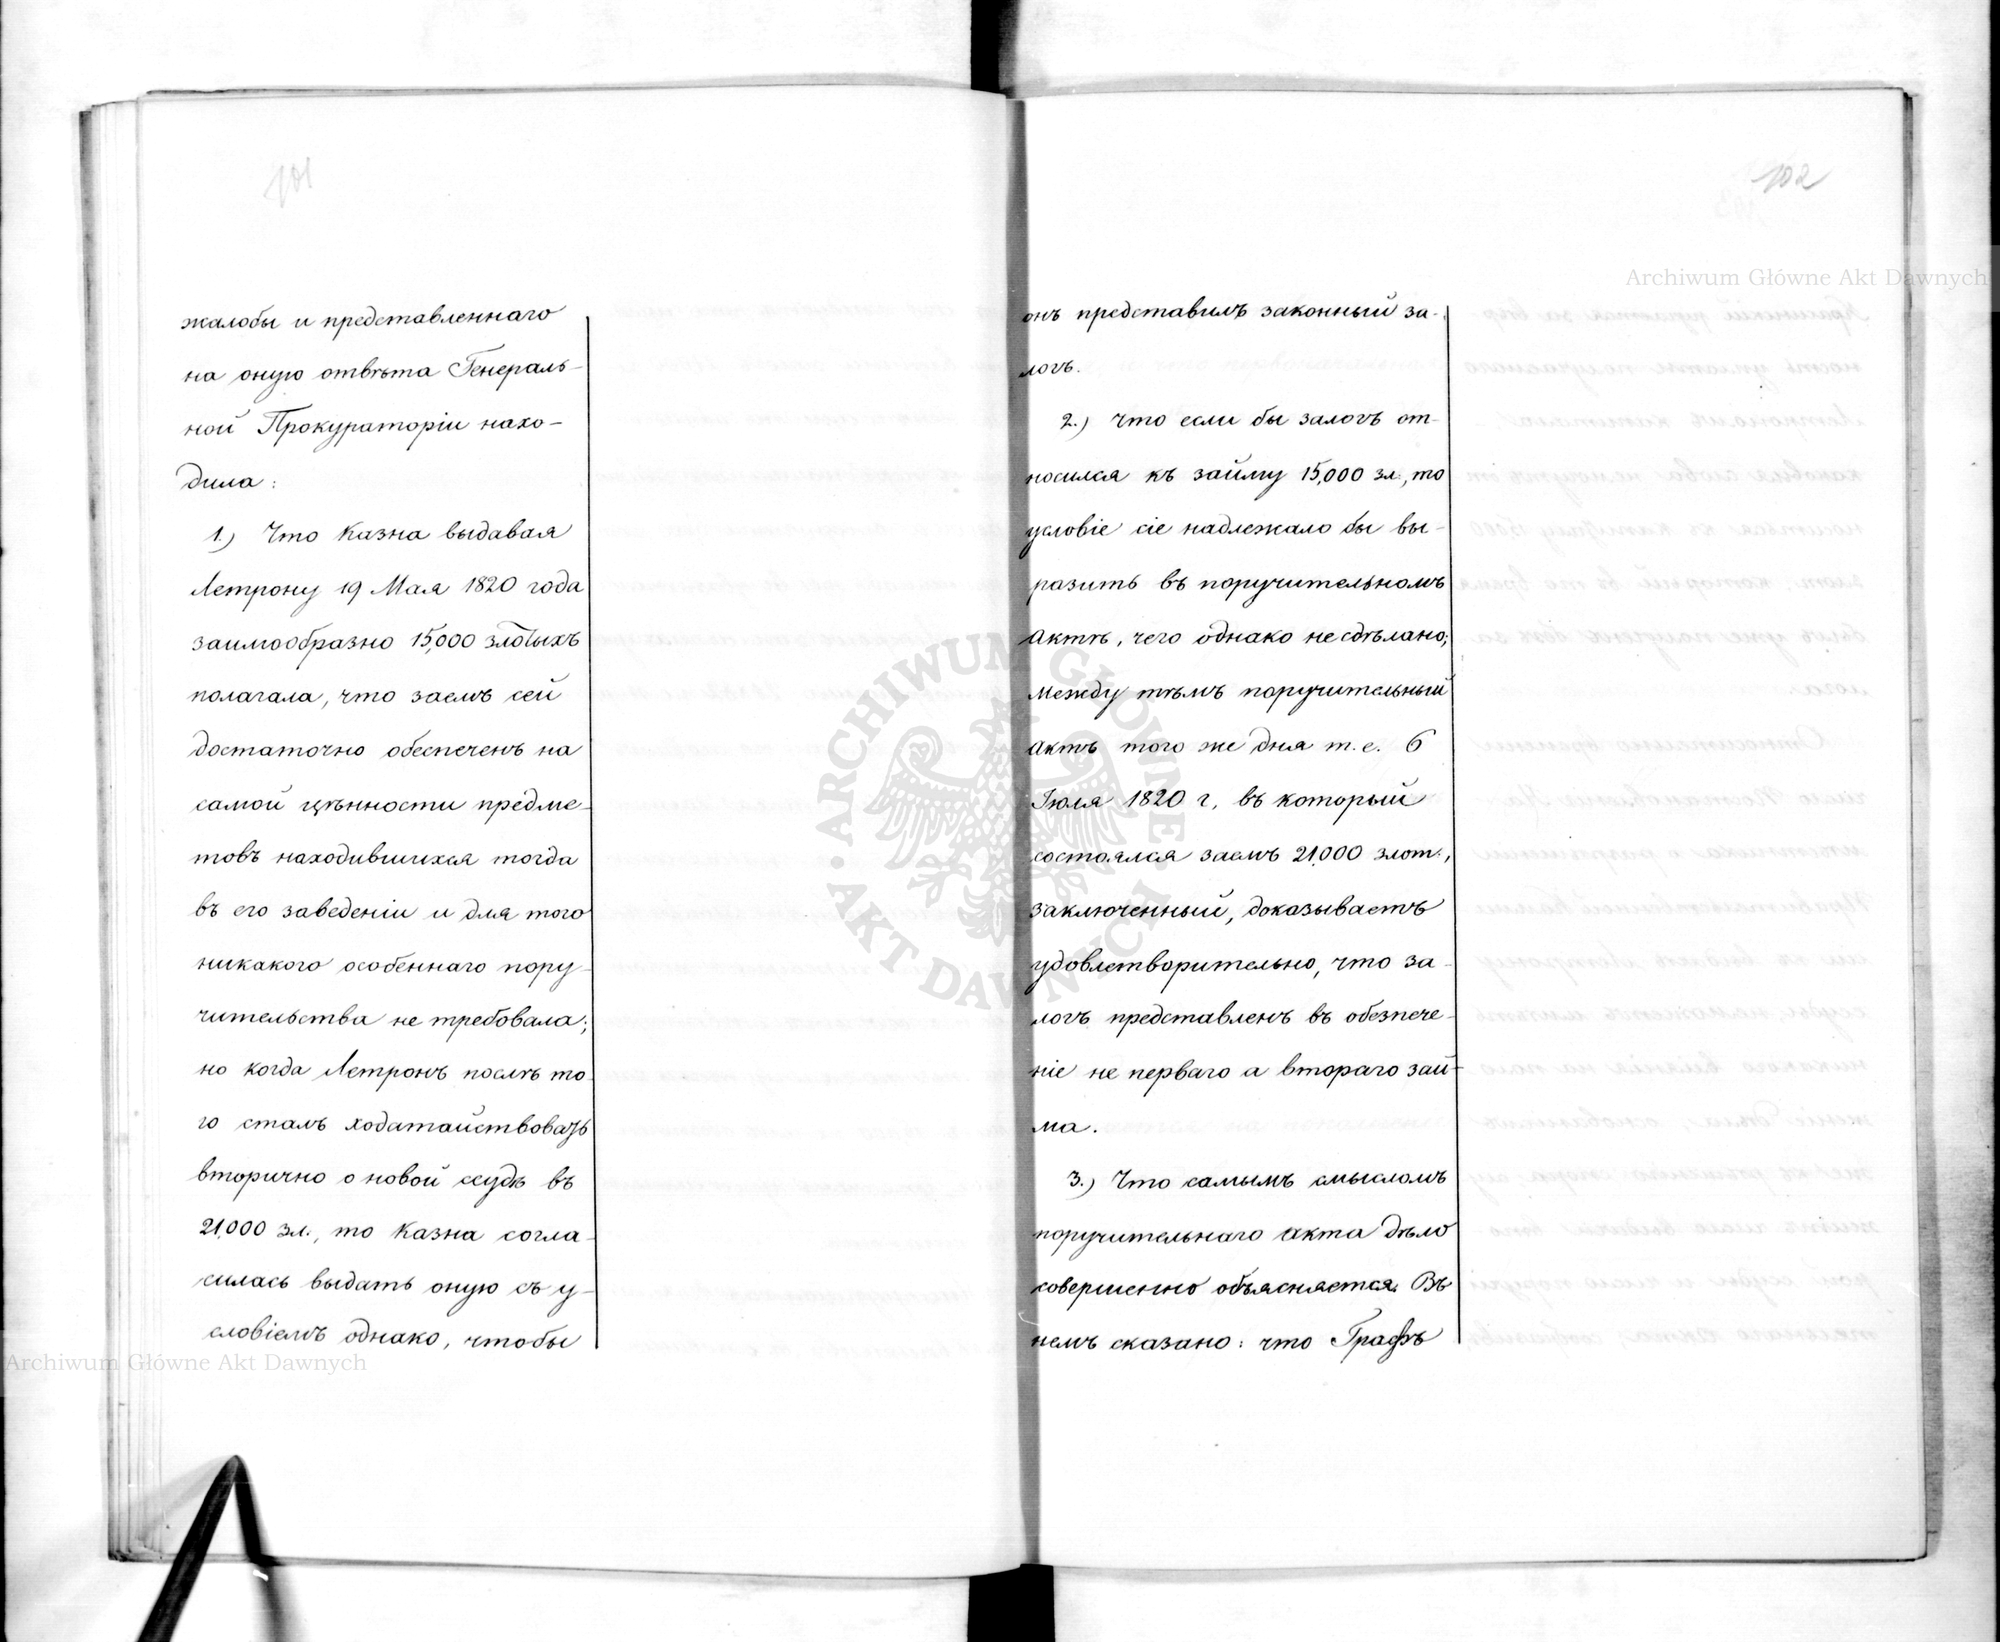 101
жалобы и представленнаго
на оную отвѣта Генераль-
ной Прокураторіи нахо-
дила:
1.) Что Казна выдавая
Летрону 19 Мая 1820 года
заимообразно 15,000 злотыхъ
полагала, что заемъ сей
достаточно обеспеченъ на
самой цѣнности предме-
товъ находившихся тогда
въ его заведеніи и для того
никакого особеннаго пору-
чительства не требовала;
но когда Летронъ послѣ то-
го сталъ ходатайствовать
вторично о новой ссудѣ въ
21,000 зл., то Казна согла-
силась выдать оную съ у-
словіемъ однако, чтобы
102
онъ представилъ законный за-
логъ.
2.) Что если бы залогъ от-
носился къ займу 15,000 зл., то
условіе сіе надлежало бы вы-
разить въ поручительномъ
Актѣ, чего однако не сдѣлано;
между тѣмъ поручительный
Актъ того же дня т. е. 6
Іюля 1820 г., въ который
состоялся заемъ 21,000 злот.,
заключенный, доказываетъ
удовлетворительно, что за-
логъ представленъ въ обезпече-
ніе не перваго а втораго зай-
ма.
3.) Что самымъ смысломъ
поручительнаго акта дѣло
совершенно объясняется. Въ
немъ сказано: что Графъ
Archiwum Główne Akt Dawnych
Archiwum Główne Akt Dawnych
ARCHIWUM GŁÓWNE AKT DAWNYCH